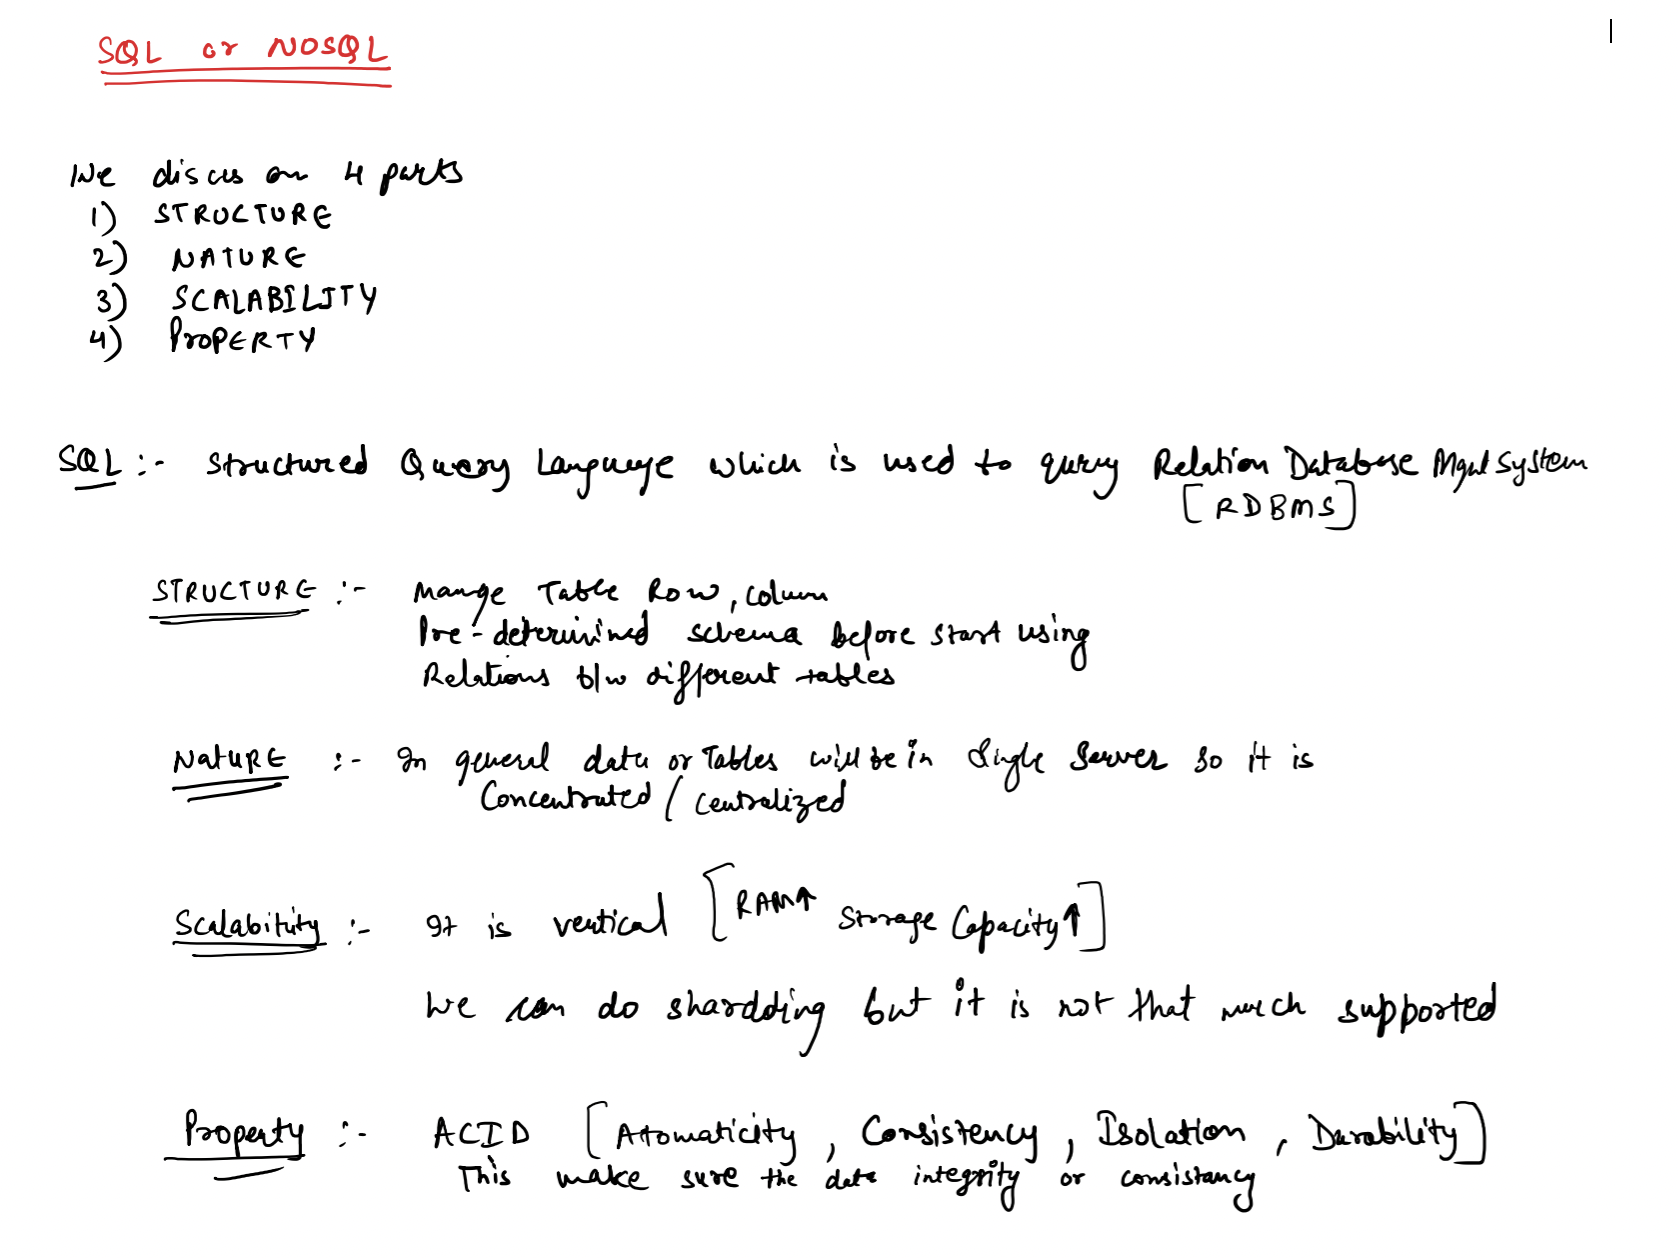 SQL or NOSQL
We discus on 4 parts
1) STRUCTURE
2) NATURE
3) SCALABILITY
4) PROPERTY
SQL :- Structured Query Language which is used to query Relation Database Mgmt System
[RDBMS]
STRUCTURE :- Mange Table Row, column
Pre-determined schema before start using
Relations b/w different tables
NATURE :- In general data or Tables will be in Single Server so it is
Concentrated / Centralized
Scalability :- It is vertical [RAM↑ Storage Capacity↑]
We can do shardding but it is not that much supported
Property :- ACID [Atomaticity, Consistency, Isolation, Durability]
This make sure the data integrity or consistancy